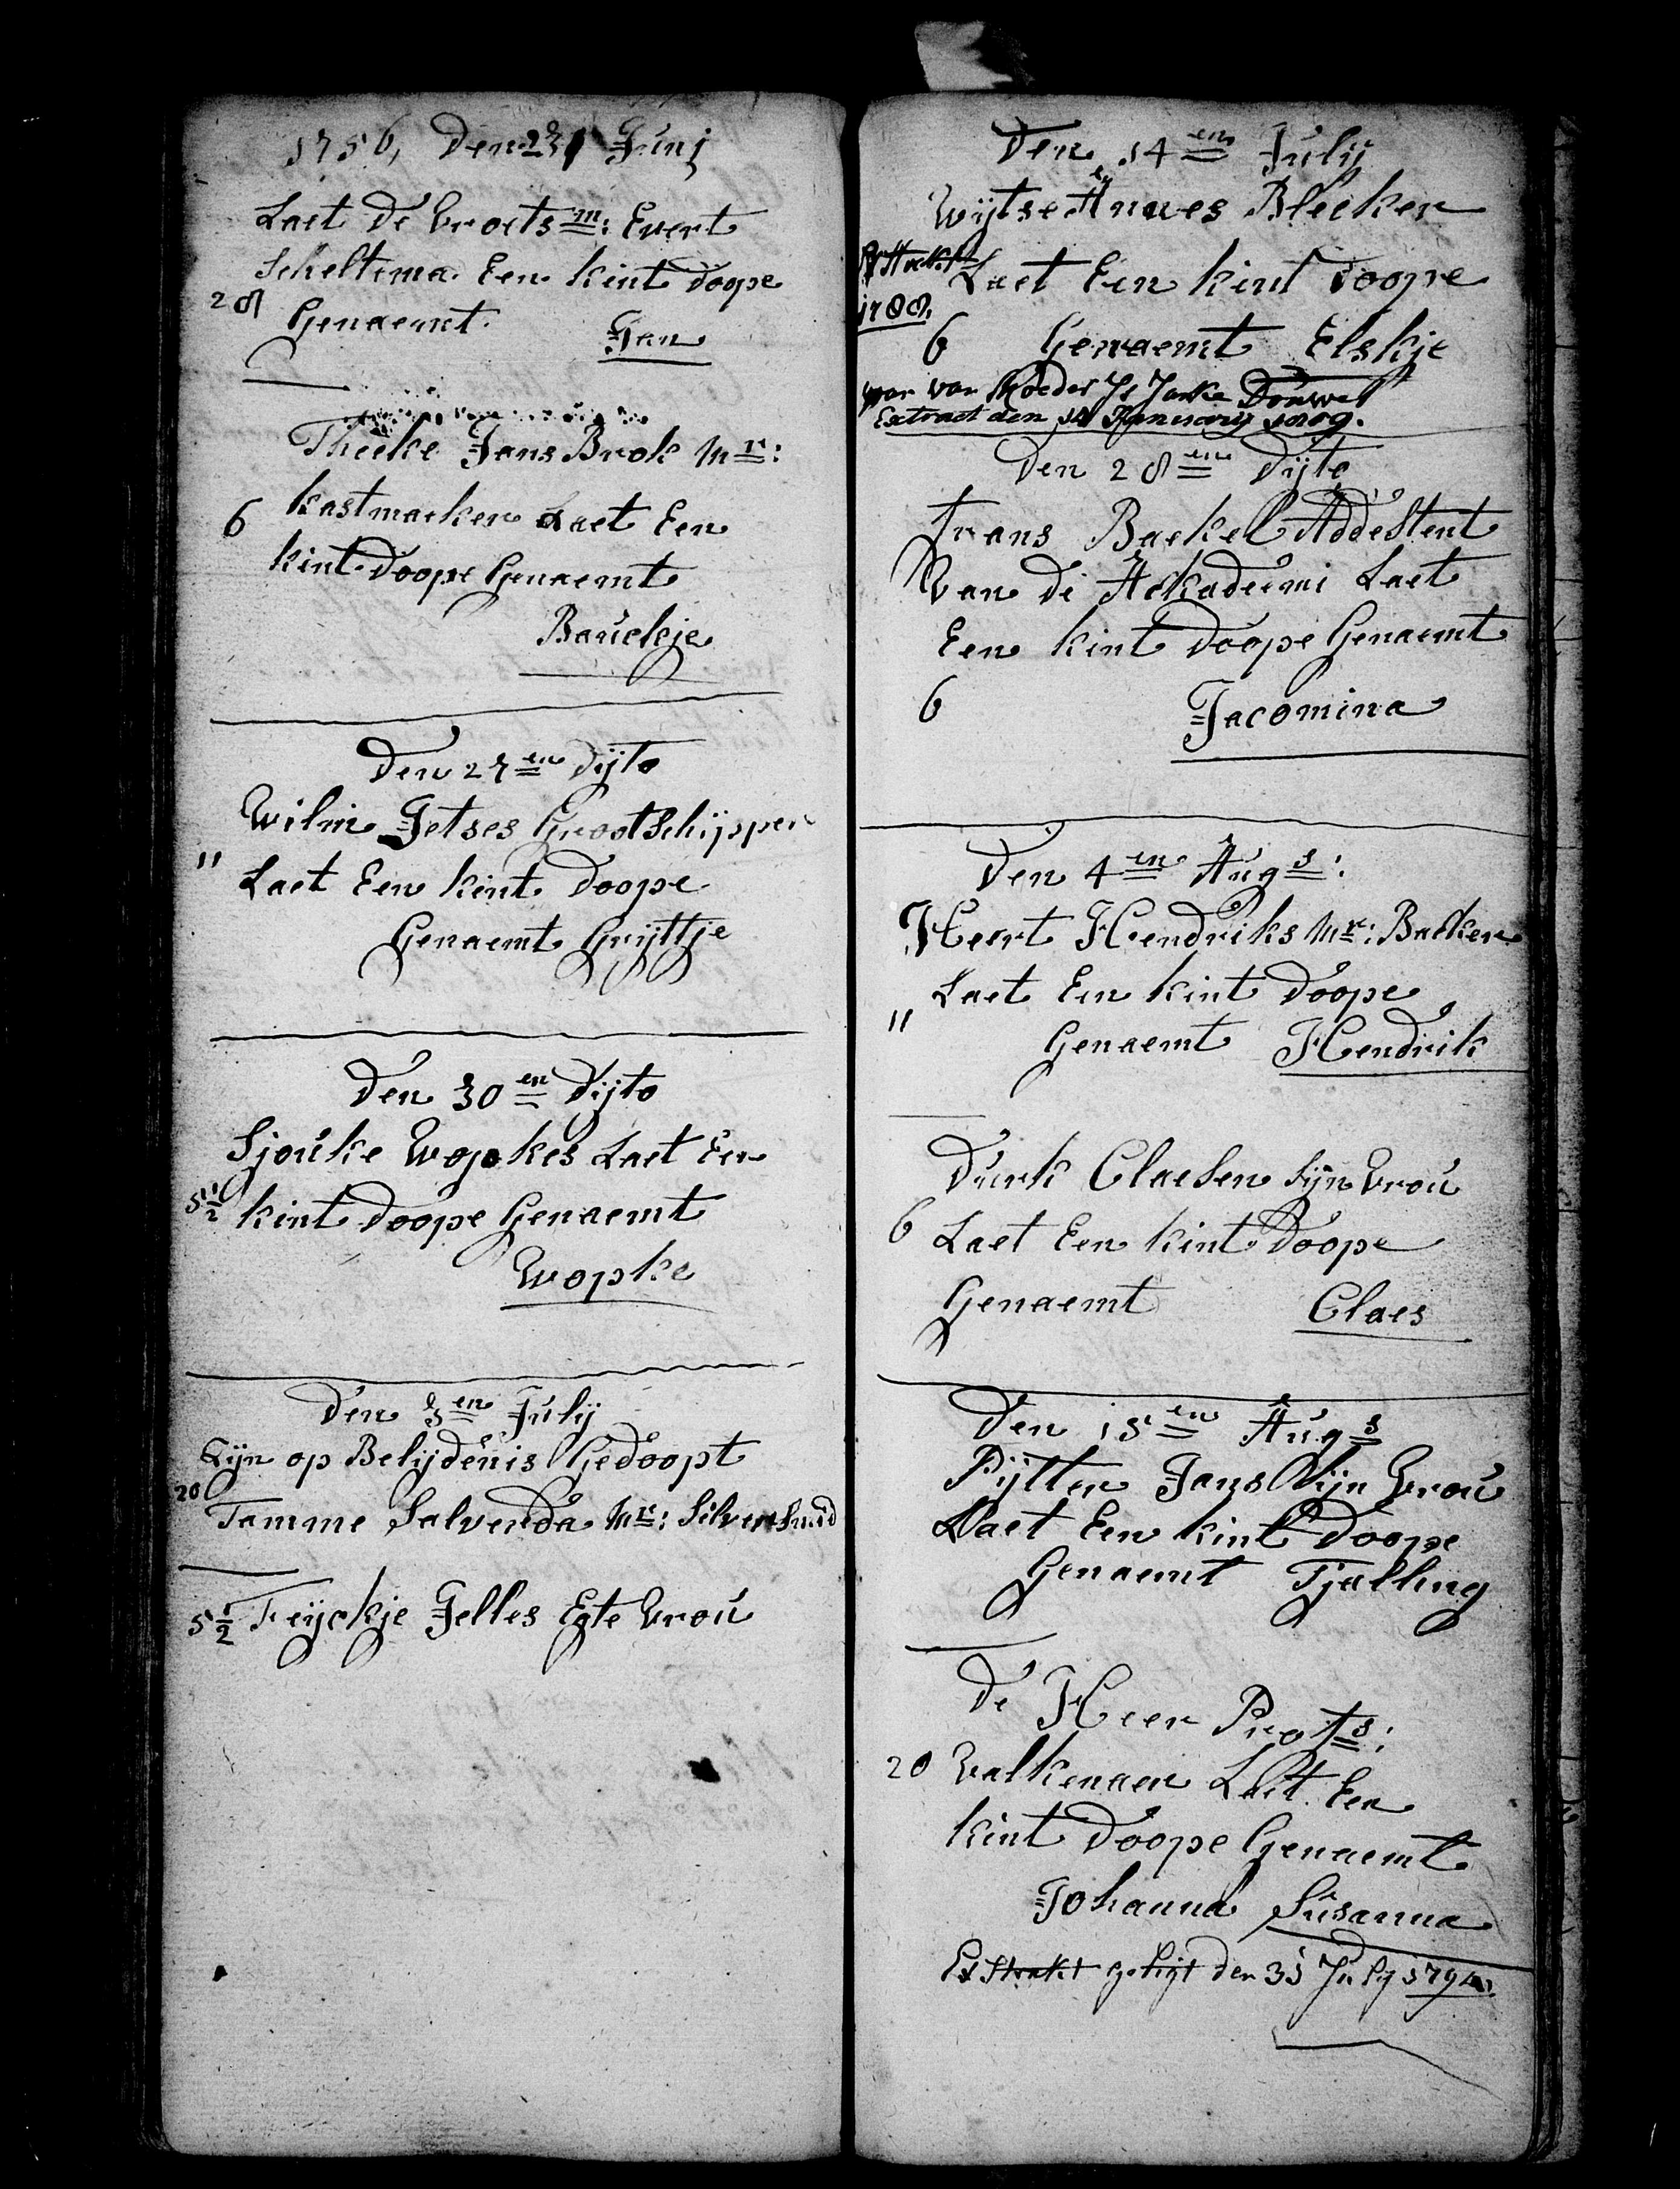 1756, Den 23 Junj
Laet De Vroets=m: Evert
Scheltema Een kint Doope
28 Genaemt. Jan
Theeke Jans Brok Mr:
6 kastmaeker Laet Een
kint Doope Genaemt
Bauckje
Den 27en Dyto
Wilm Jetses Grootschipper
" Laet Een kint Doope
Genaemt Gryttje
Den 30en Dijto
Sjouke Wopkes Laet Een
5½ kint Doope Genaemt
Wopke
Den 3en July
Lyn op Belydenis Gedoopt
20 Tamme Salverda Mr: Silversmid
5½ Feyckje Jelles Egte Vrou
Den 14en July
Wytse Annes Bleeker
Laet Een kint Doope
1788.
6 Genaemt Elskje
van Moeder Is Janke Douwes
Extract den 14 Janewary 1809.
Den 28en Dyto
Frans Backel Addestent
Van De Ackadeemi Laet
Een kint Doope Genaemt
6 Jacomina
Den 4en Augs:
Heert Hendriks Mr: Backer
Laet Een kint Doope
" Genaemt Hendrik
Durk Claesen Syn Vrou
6 Laet Een kint Doope
Genaemt Claes
Den 15en Augs
Pytter Jans Syn Vrou
Laet Een kint Doope
Genaemt Tjalling
De Heer Profs:
20 Valkenaer Laet Een
kint Doope Genaemt
Johanna Susanna
Exstrakt geligt den 31 July 1794